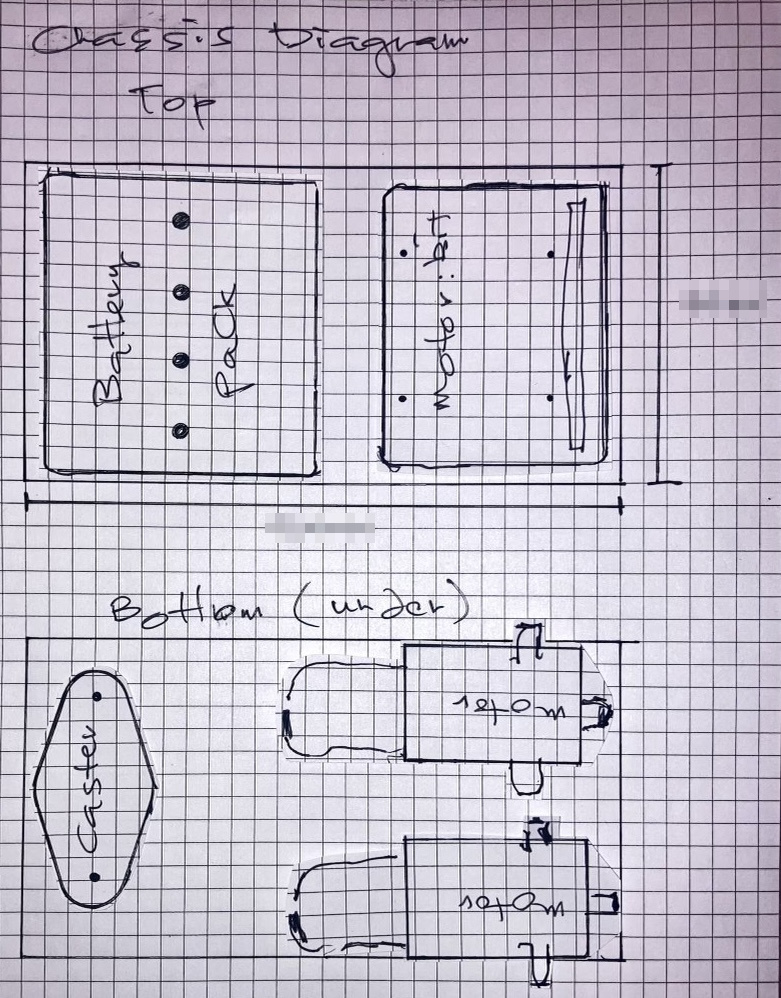 Chassis Diagram
Top
Battery
Pack
motor:bit
Bottom (under)
Caster
motor
motor